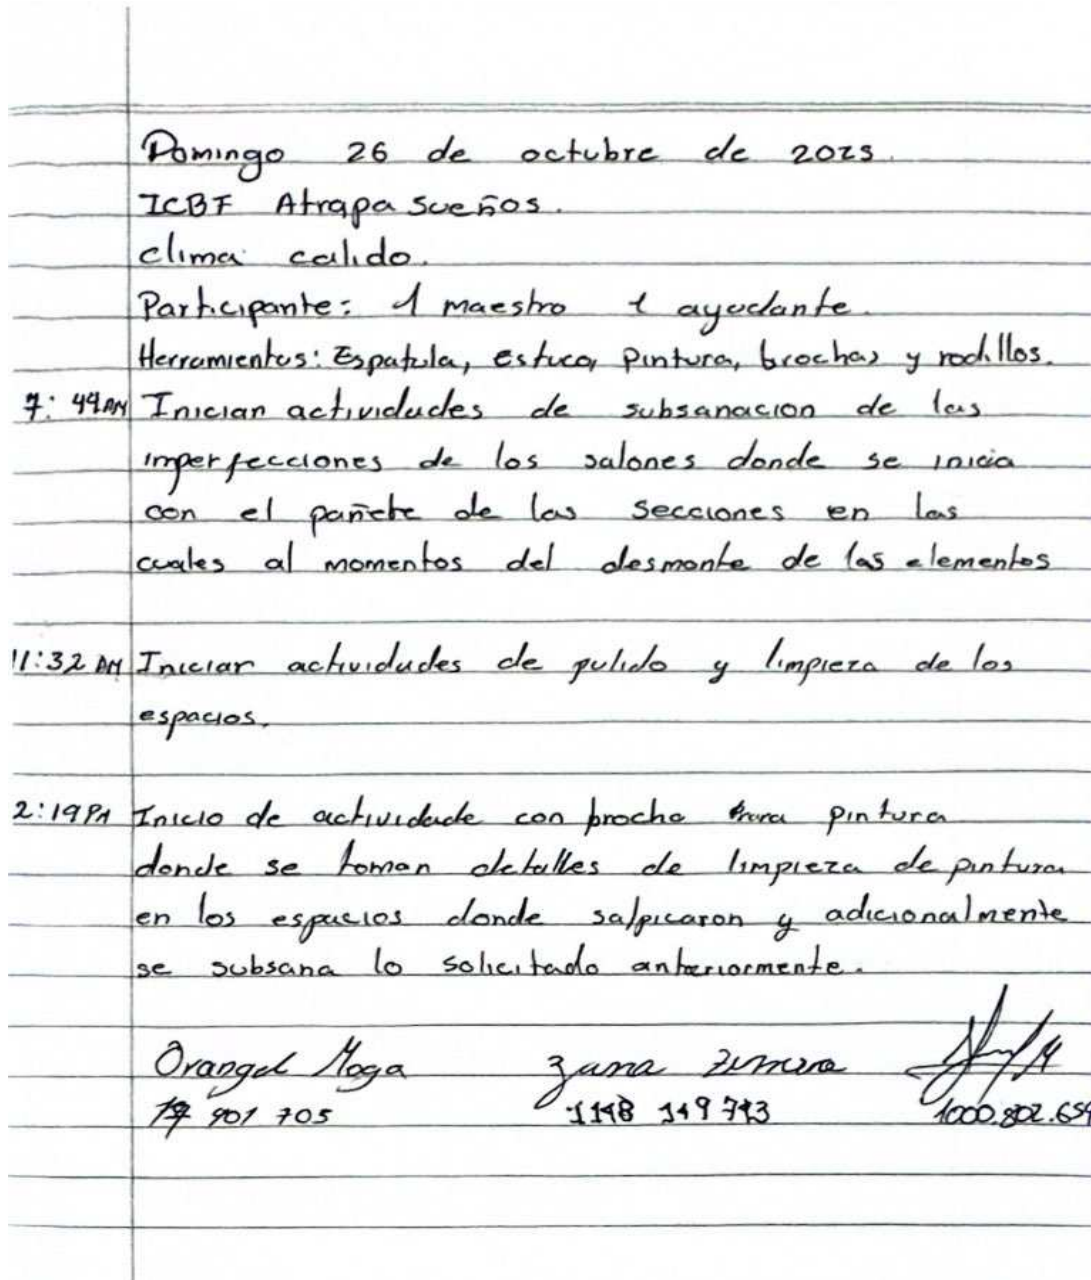 Domingo 26 de octubre de 2025.
ICBF Atrapa Sueños.
clima calido.
Participante: 1 maestro 1 ayudante.
Herramientas: Espatula, estuco, pintura, brochas y rodillos.
7:49AM Inician actividades de subsanacion de las
imperfecciones de los salones donde se inicia
con el pañete de las secciones en las
cuales al momentos del desmonte de las elementos
11:32 AM Iniciar actividades de pulido y limpieza de los
espacios.
2:19PM Inicio de actividade con brocha pintura
donde se toman detalles de limpieza de pintura
en los espacios donde salpicaron y adicionalmente
se subsana lo solicitado anteriormente.
Orangel Moga
901 705 1148 149 743 1000.802.659